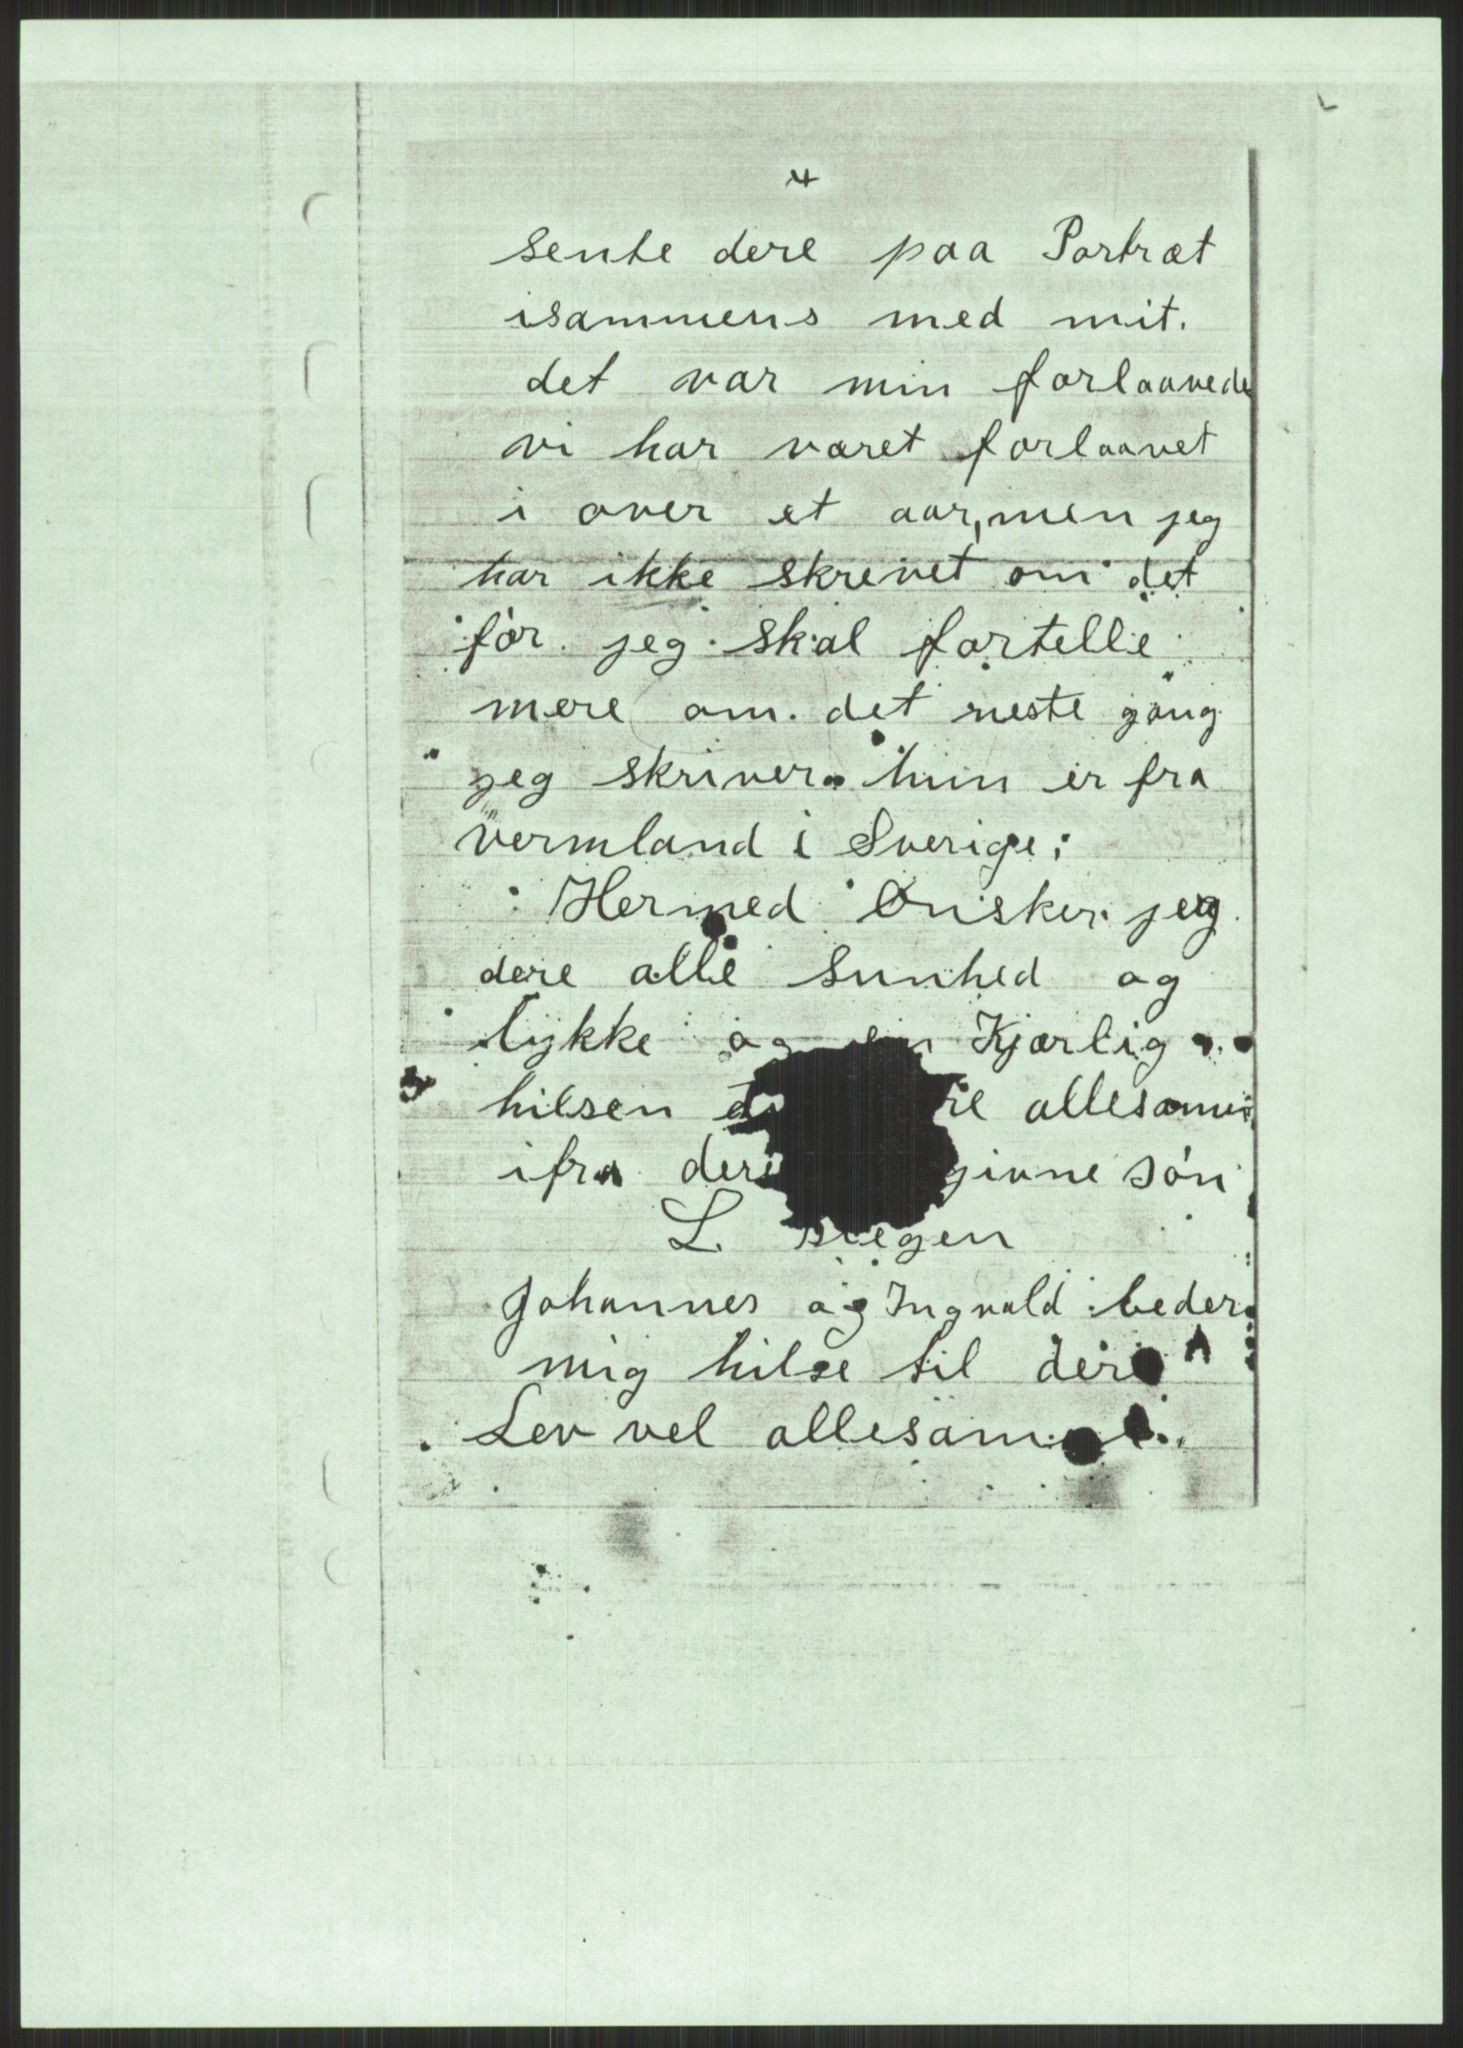 4
sente dere paa Portræt
isammens med mit.
det var min forlaavede
vi har været forlaavet
i over et aar, men jeg
har ikke skrevet om det
før. jeg skal fortelle
mere om det neste gang
jeg skriver. hun er fra
vermland i Sverige;
Hermed Ønsker jeg
dere alle sunhed og
lykke og en Kjærlig
hilsen allesamen
ifra givne søn
L.
Johannes og Ingvald beder
mig hilse til dere
Lev vel